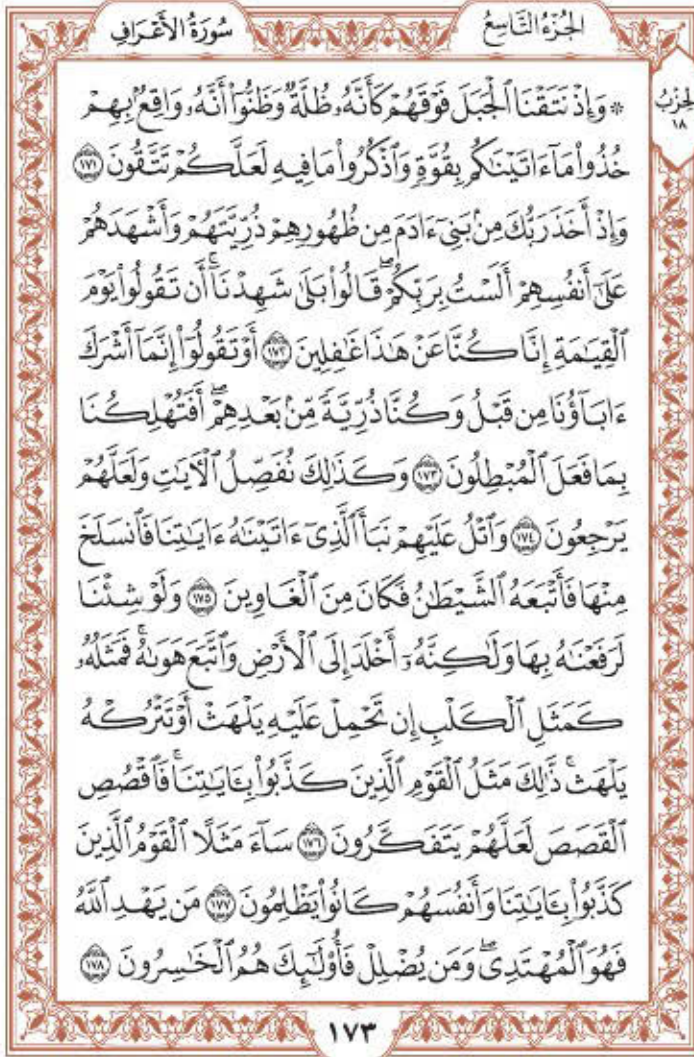 سُورَةُ الأَعْرَافِ
الجُزْءُ التَّاسِعُ
الحِزْبُ
١٨
۞ وَإِذْ نَتَقْنَا ٱلْجَبَلَ فَوْقَهُمْ كَأَنَّهُۥ ظُلَّةٌ وَظَنُّوٓا۟ أَنَّهُۥ وَاقِعٌۢ بِهِمْ
خُذُوا۟ مَآ ءَاتَيْنَٰكُم بِقُوَّةٍ وَٱذْكُرُوا۟ مَا فِيهِ لَعَلَّكُمْ تَتَّقُونَ ١٧١
وَإِذْ أَخَذَ رَبُّكَ مِنۢ بَنِىٓ ءَادَمَ مِن ظُهُورِهِمْ ذُرِّيَّتَهُمْ وَأَشْهَدَهُمْ
عَلَىٰٓ أَنفُسِهِمْ أَلَسْتُ بِرَبِّكُمْ ۖ قَالُوا۟ بَلَىٰ شَهِدْنَآ ۚ أَن تَقُولُوا۟ يَوْمَ
ٱلْقِيَٰمَةِ إِنَّا كُنَّا عَنْ هَٰذَا غَٰفِلِينَ ١٧٢ أَوْ تَقُولُوٓا۟ إِنَّمَآ أَشْرَكَ
ءَابَآؤُنَا مِن قَبْلُ وَكُنَّا ذُرِّيَّةً مِّنۢ بَعْدِهِمْ ۖ أَفَتُهْلِكُنَا
بِمَا فَعَلَ ٱلْمُبْطِلُونَ ١٧٣ وَكَذَٰلِكَ نُفَصِّلُ ٱلْءَايَٰتِ وَلَعَلَّهُمْ
يَرْجِعُونَ ١٧٤ وَٱتْلُ عَلَيْهِمْ نَبَأَ ٱلَّذِىٓ ءَاتَيْنَٰهُ ءَايَٰتِنَا فَٱنسَلَخَ
مِنْهَا فَأَتْبَعَهُ ٱلشَّيْطَٰنُ فَكَانَ مِنَ ٱلْغَاوِينَ ١٧٥ وَلَوْ شِئْنَا
لَرَفَعْنَٰهُ بِهَا وَلَٰكِنَّهُۥٓ أَخْلَدَ إِلَى ٱلْأَرْضِ وَٱتَّبَعَ هَوَىٰهُ ۚ فَمَثَلُهُۥ
كَمَثَلِ ٱلْكَلْبِ إِن تَحْمِلْ عَلَيْهِ يَلْهَثْ أَوْ تَتْرُكْهُ
يَلْهَث ۚ ذَّٰلِكَ مَثَلُ ٱلْقَوْمِ ٱلَّذِينَ كَذَّبُوا۟ بِـَٔايَٰتِنَا ۚ فَٱقْصُصِ
ٱلْقَصَصَ لَعَلَّهُمْ يَتَفَكَّرُونَ ١٧٦ سَآءَ مَثَلًا ٱلْقَوْمُ ٱلَّذِينَ
كَذَّبُوا۟ بِـَٔايَٰتِنَا وَأَنفُسَهُمْ كَانُوا۟ يَظْلِمُونَ ١٧٧ مَن يَهْدِ ٱللَّهُ
فَهُوَ ٱلْمُهْتَدِى ۖ وَمَن يُضْلِلْ فَأُو۟لَٰٓئِكَ هُمُ ٱلْخَٰسِرُونَ ١٧٨
١٧٣